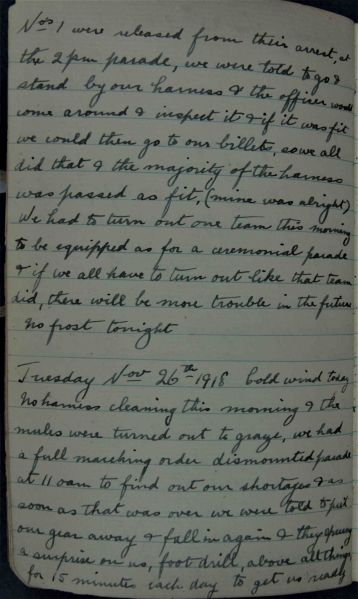 Nos 1 were released from their arrest, at
the 2 pm parade, we were told to go &
stand by our harness & the officer would
come around & inspect it & if it was fit
we could then go to our billets, so we all
did that & the majority of the harness
was passed as fit, (mine was alright)
We had to turn out one team this morning
to be equipped as for a ceremonial parade
& if we all have to turn out like that team
did, there will be more trouble in the future
No frost tonight
Tuesday Nov 26th 1918 Cold wind today
No harness cleaning this morning & the
mules were turned out to graze, we had
a full marching order dismounted parade
at 11 oam to find out our shortages & as
soon as that was over we were told to put
our gear away & fall in again & they sprung
a surprise on us, foot drill, above all things
for 15 minutes each day to get us ready